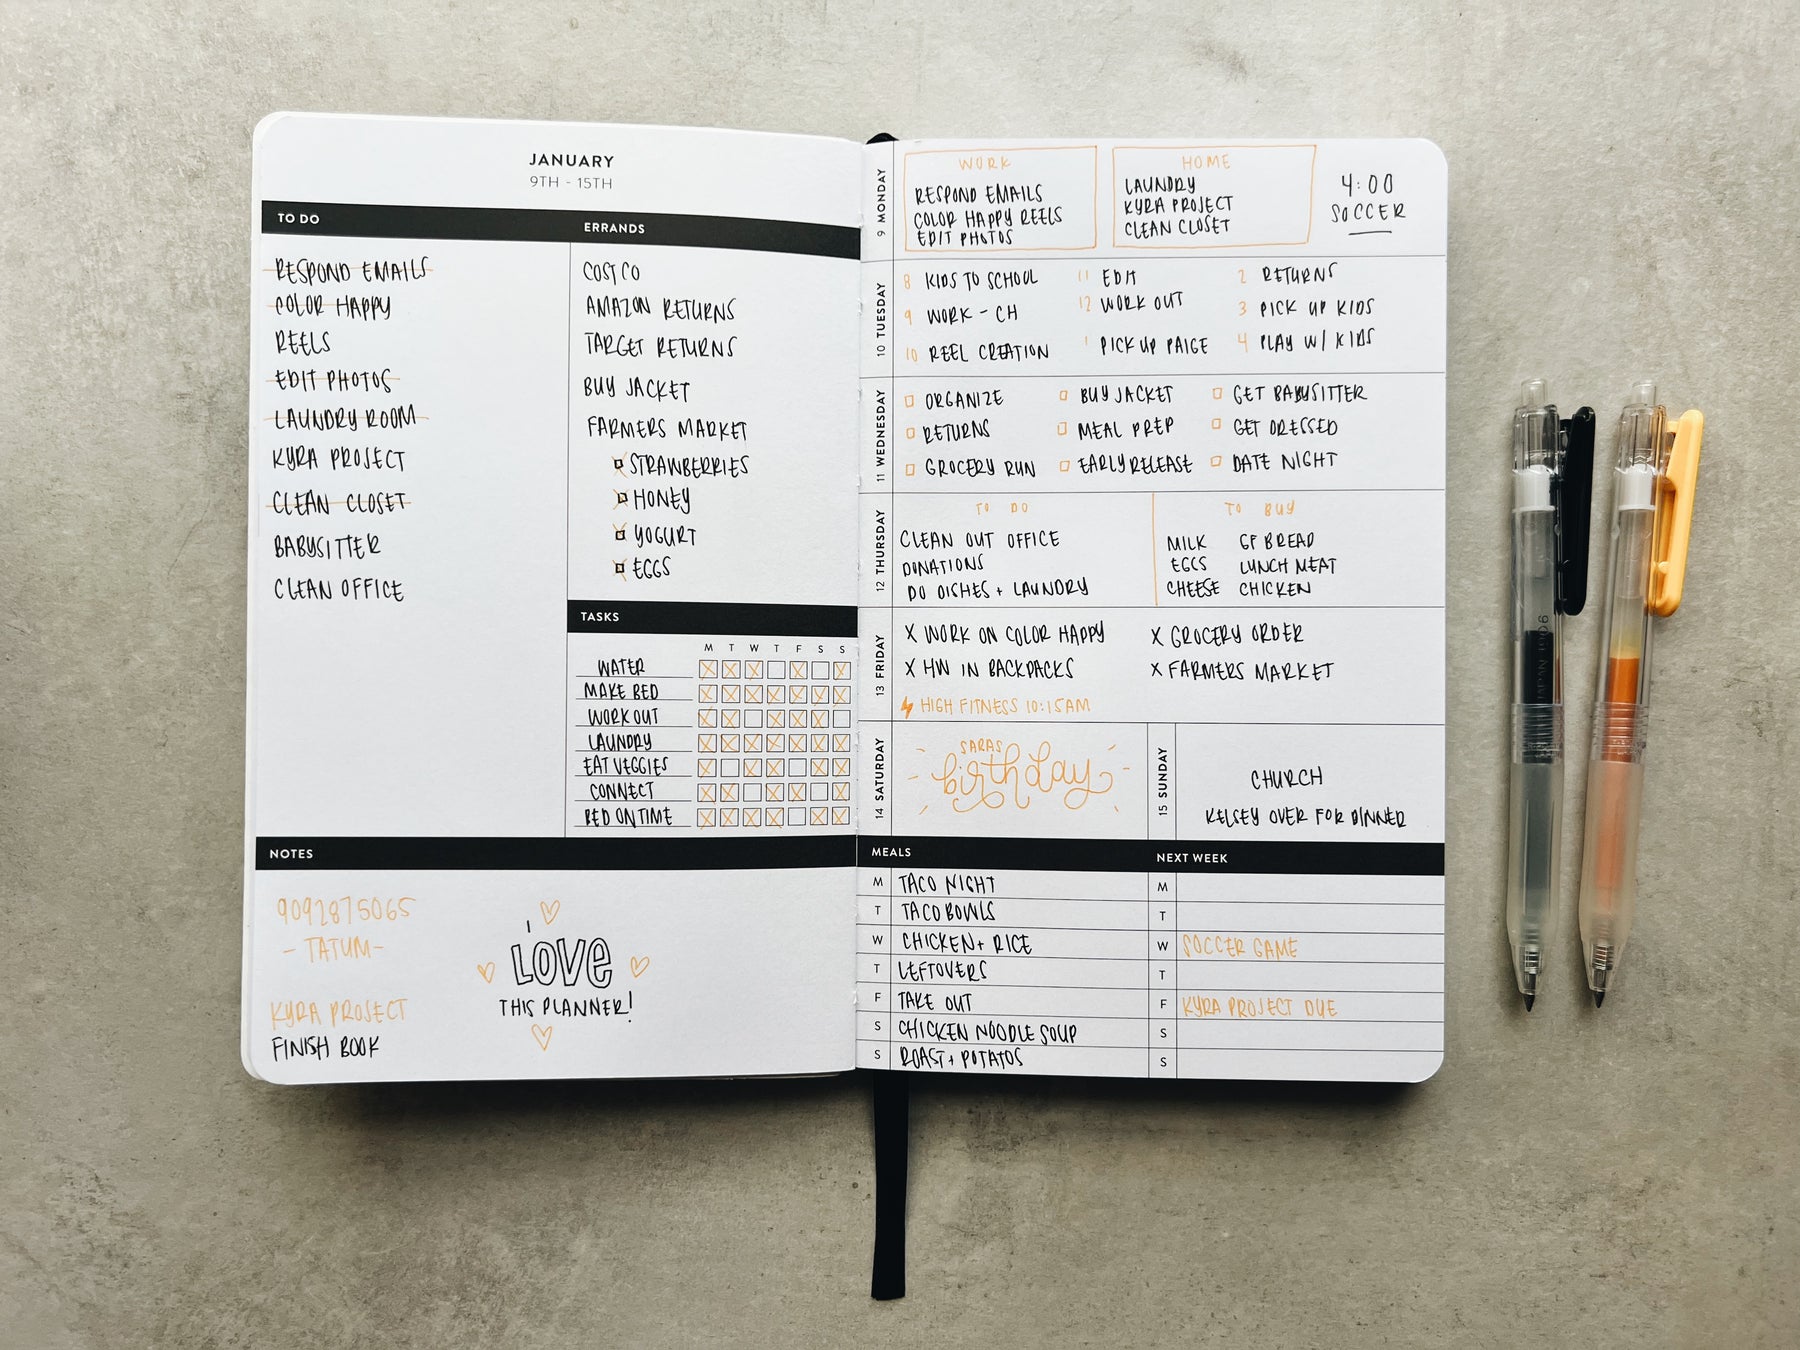 JANUARY
9TH - 15TH
TO DO
RESPOND EMAILS
COLOR HAPPY
REELS
EDIT PHOTOS
LAUNDRY ROOM
KYRA PROJECT
CLEAN CLOSET
BABYSITTER
CLEAN OFFICE
ERRANDS
COSTCO
AMAZON RETURNS
TARGET RETURNS
BUY JACKET
FARMERS MARKET
STRAWBERRIES
HONEY
YOGURT
EGGS
TASKS
M T W T F S S
WATER
MAKE BED
WORK OUT
LAUNDRY
EAT VEGGIES
CONNECT
BED ON TIME
NOTES
9092875065
- TATUM -
KYRA PROJECT
FINISH BOOK
I
LOVE
THIS PLANNER!
9 MONDAY
WORK
RESPOND EMAILS
COLOR HAPPY REELS
EDIT PHOTOS
HOME
LAUNDRY
KYRA PROJECT
CLEAN CLOSET
4:00
SOCCER
10 TUESDAY
8 KIDS TO SCHOOL
9 WORK - CH
10 REEL CREATION
11 EDIT
12 WORK OUT
1 PICK UP PAIGE
2 RETURNS
3 PICK UP KIDS
4 PLAY W/ KIDS
11 WEDNESDAY
ORGANIZE
RETURNS
GROCERY RUN
BUY JACKET
MEAL PREP
EARLY RELEASE
GET BABYSITTER
GET DRESSED
DATE NIGHT
12 THURSDAY
TO DO
CLEAN OUT OFFICE
DONATIONS
DO DISHES + LAUNDRY
TO BUY
MILK
EGGS
CHEESE
GF BREAD
LUNCH MEAT
CHICKEN
13 FRIDAY
X WORK ON COLOR HAPPY
X HW IN BACKPACKS
X GROCERY ORDER
X FARMERS MARKET
HIGH FITNESS 10:15AM
14 SATURDAY
SARAS
birthday
15 SUNDAY
CHURCH
KELSEY OVER FOR DINNER
MEALS
M TACO NIGHT
T TACO BOWLS
W CHICKEN + RICE
T LEFTOVERS
F TAKE OUT
S CHICKEN NOODLE SOUP
S ROAST + POTATOS
NEXT WEEK
M
T
W SOCCER GAME
T
F KYRA PROJECT DUE
S
S